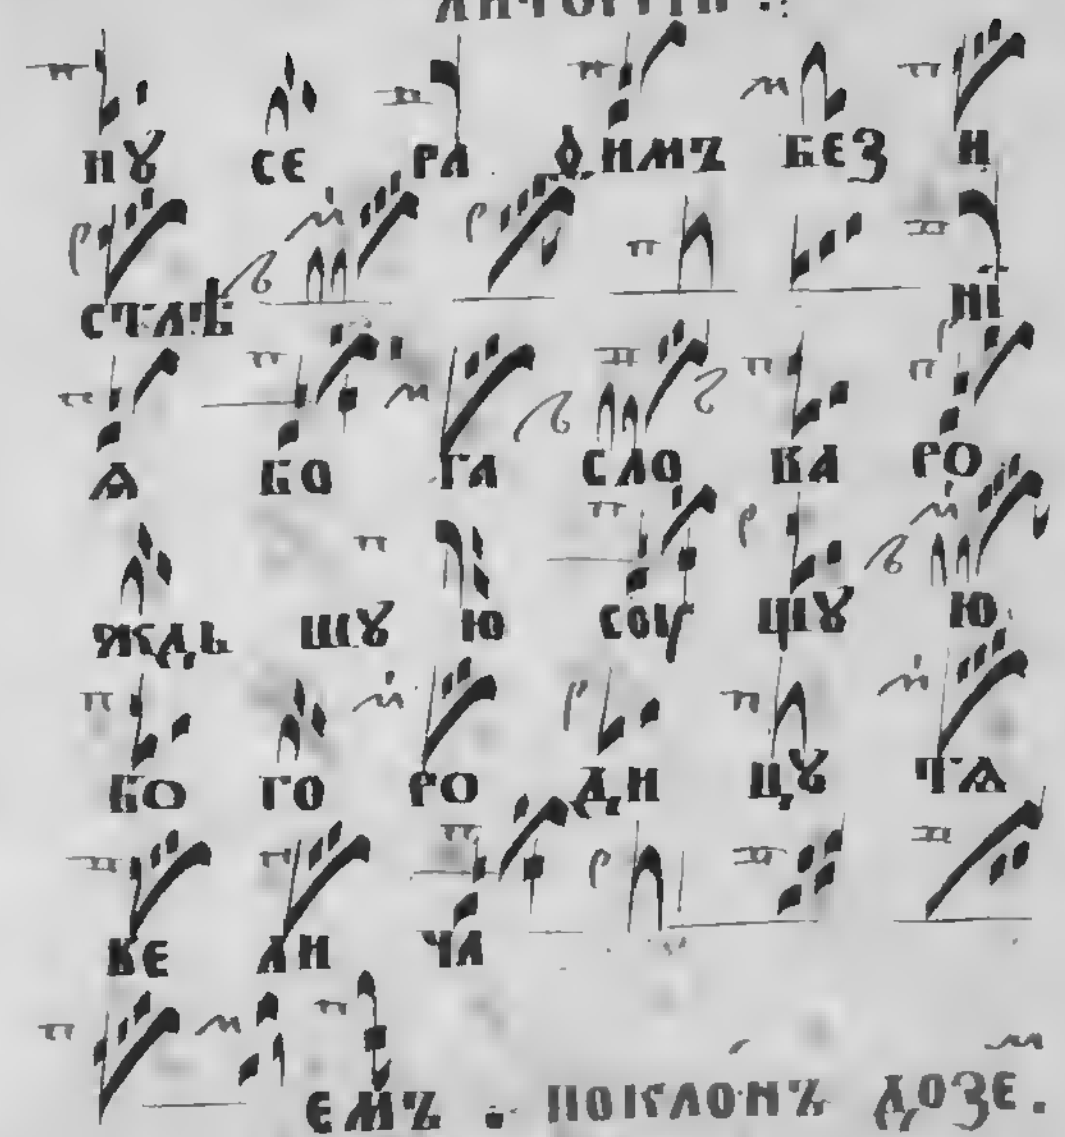 НꙊ СЕ РА ФИМЪ БЕЗ И
СТЛѢ НІ
Ѧ БО ГА СЛО ВА РО
ЖДЬ ШꙊ Ю СОУ ЩꙊ Ю
БО ГО РО ДИ ЦꙊ ТѦ
ВЕ ЛИ ЧА
ЕМЪ . ПОКЛОНЪ ДОЗЕ.